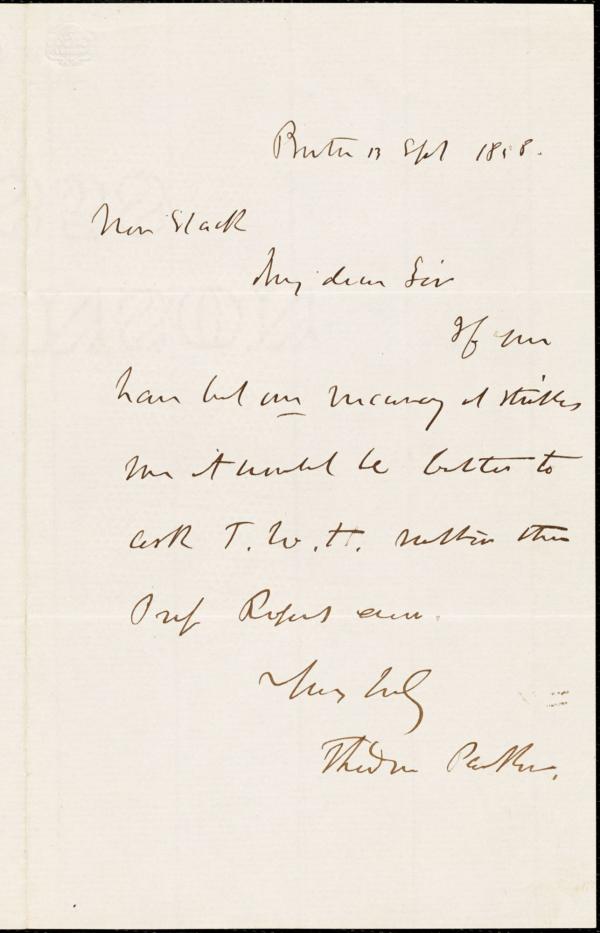 Boston 13 Sept 1858.
Mr Slack
My dear Sir
If you
have but one vacancy it strikes
me it would be better to
ask T. W. H. rather than
Prof Rogers even.
Yours truly
Theodore Parker.